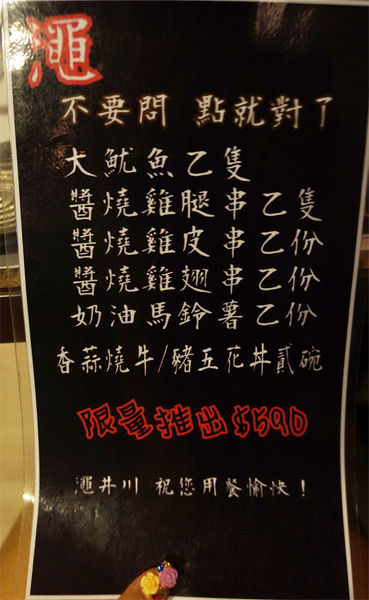 澠
不要問 點就對了
大魷魚乙隻
醬燒雞腿串乙隻
醬燒雞皮串乙份
醬燒雞翅串乙份
奶油馬鈴薯乙份
香蒜燒牛/豬五花丼貳碗
限量推出$590
澠井川 祝您用餐愉快！